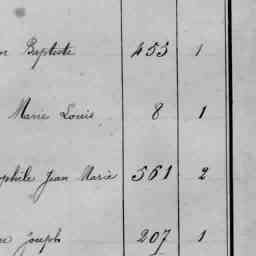 Baptiste 455 1
Marie Louis 8 1
ophile Jean Marie 561 2
Joseph 207 1